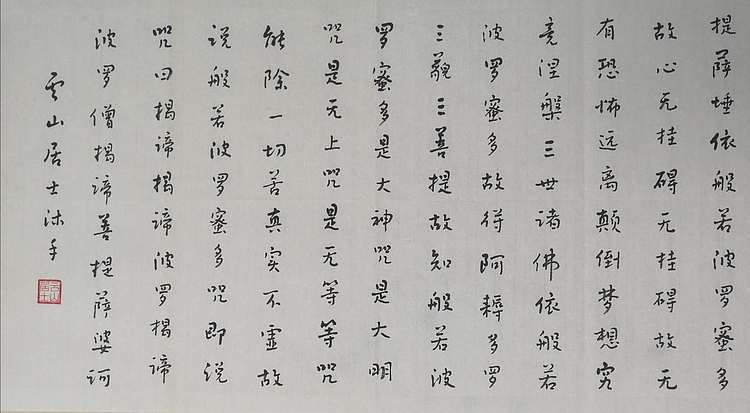 提萨埵依般若波罗蜜多
故心无挂碍无挂碍故无
有恐怖远离颠倒梦想究
竟涅槃三世诸佛依般若
波罗蜜多故得阿耨多罗
三藐三菩提故知般若波
罗蜜多是大神咒是大明
咒是无上咒是无等等咒
能除一切苦真实不虚故
说般若波罗蜜多咒即说
咒曰揭谛揭谛波罗揭谛
波罗僧揭谛菩提萨婆诃
云山居士沐手